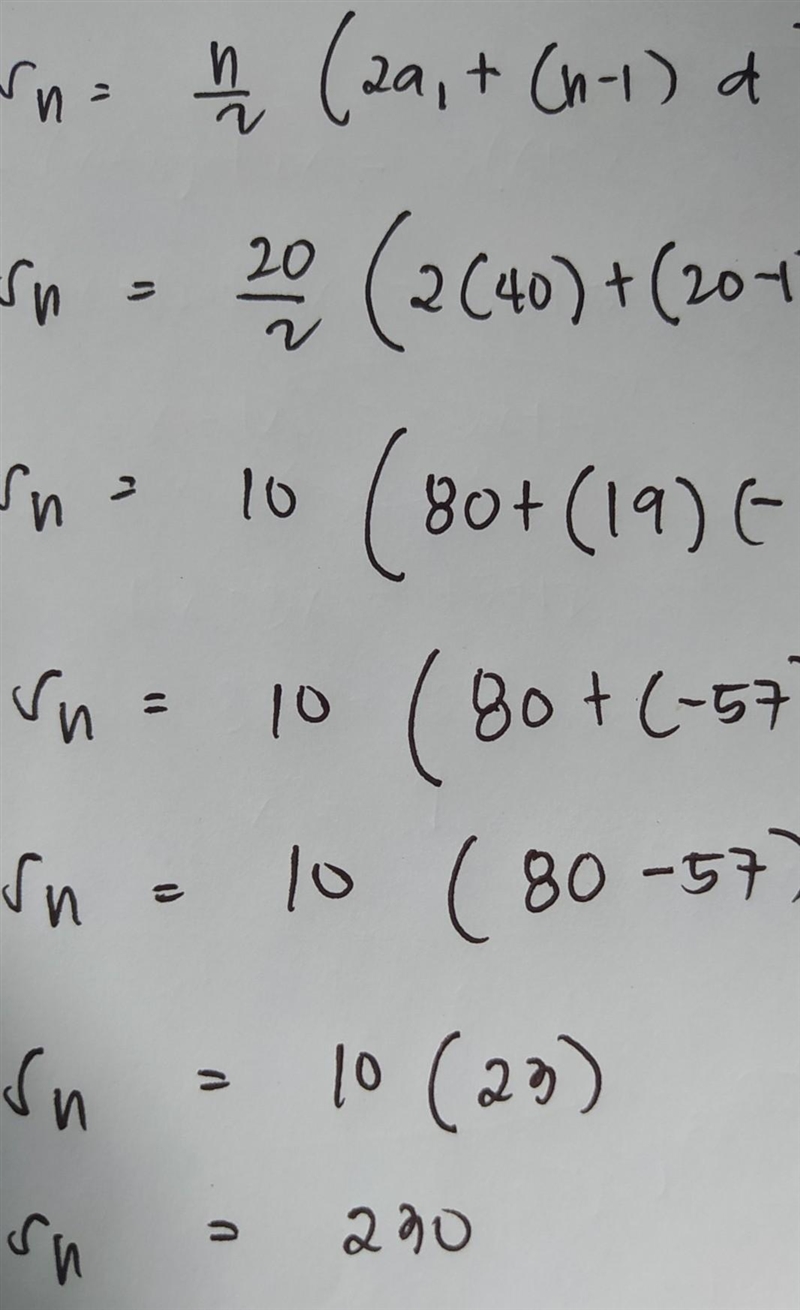 Sn = n/2 (2a₁ + (n-1) d
Sn = 20/2 (2(40) + (20-1)
Sn = 10 (80 + (19) (-
Sn = 10 (80 + (-57)
Sn = 10 (80 - 57)
Sn = 10 (23)
Sn = 230